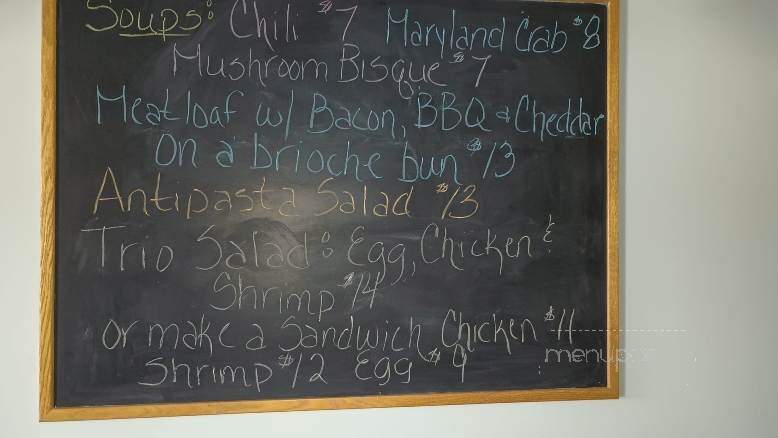 Soups: Chili $7 Maryland Crab $8
Mushroom Bisque $7
Meatloaf w/ Bacon, BBQ & Cheddar
On a brioche bun $13
Antipasta Salad $13
Trio Salad: Egg, Chicken &
Shrimp $14
or make a Sandwich Chicken $11
Shrimp $12 Egg $9